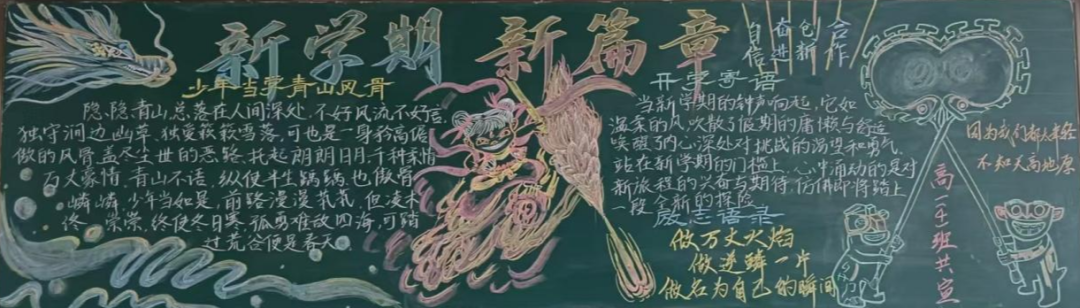 新学期 新篇章
少年当掌青山风骨
隐、隐、青山总落在人间深处.不好风流不好言
独守涧边幽草.独爱簌簌雪落.可也是一身矜高倨
傲的风骨盖尽尘世的恶骆.托起朗朗日月.千种柔情
万丈豪情.青山不语.纵使半生踽踽.也傲骨
嶙嶙.少年当如是.前路漫漫茕茕.但凌木
终崇崇.终使冬日寒.孤勇难敌四海.可踏
过荒芜便是春天。
自信 奋进 创新 合作
开学寄语
当新学期的钟声响起.它如
温柔的风.吹散了假期的慵懒与舒适
唤醒了内心深处对挑战的渴望和勇气.
站在新学期的门槛上.心中涌动的是对
新旅程的兴奋与期待.仿佛即将踏上
一段全新的探险
励志语录
做万丈火焰
做逆鳞一片
做名为自己的瞬间
因为我们都太年轻
不知天高地厚
高一4班共宣